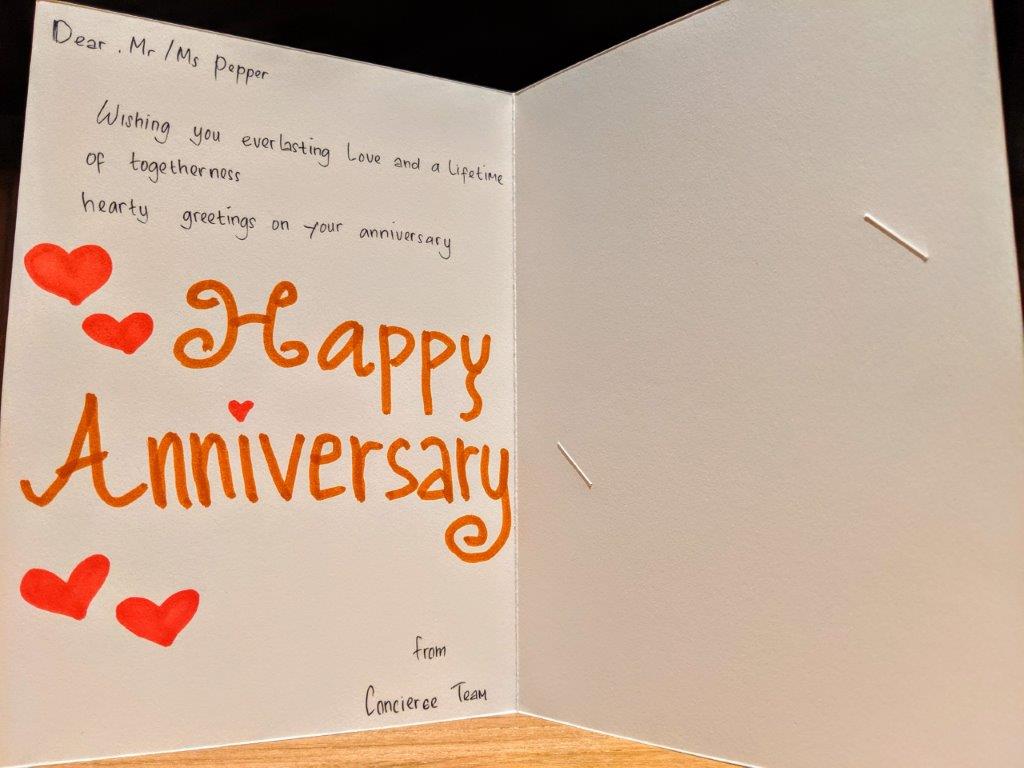 Dear. Mr/Ms Pepper
Wishing you everlasting Love and a Lifetime
of togetherness
hearty greetings on your anniversary
Happy
Anniversary
from
Concieree Team